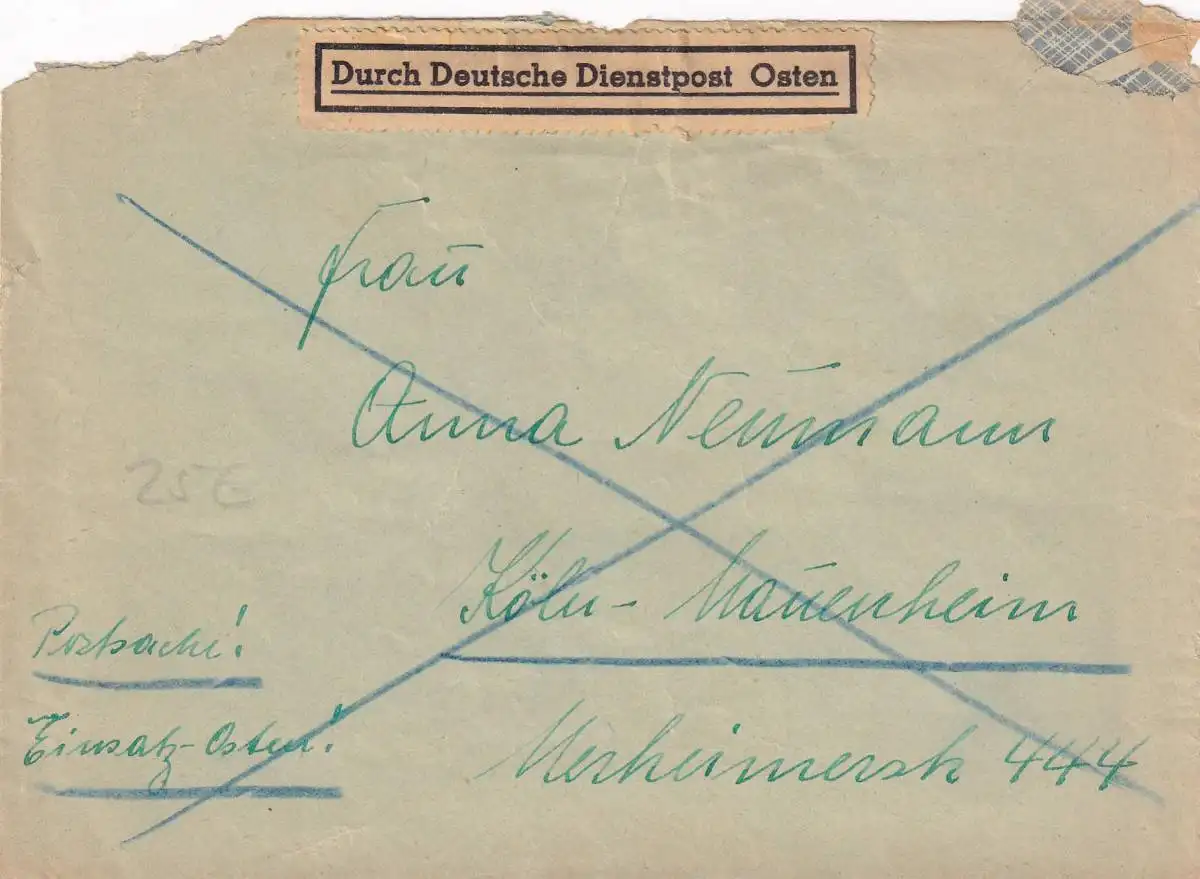 Durch Deutsche Dienstpost Osten
Frau
Anna Neumann
Köln-Mauenheim
Postsache!
Einsatz-Osten!
Merheimerstr 444
25E